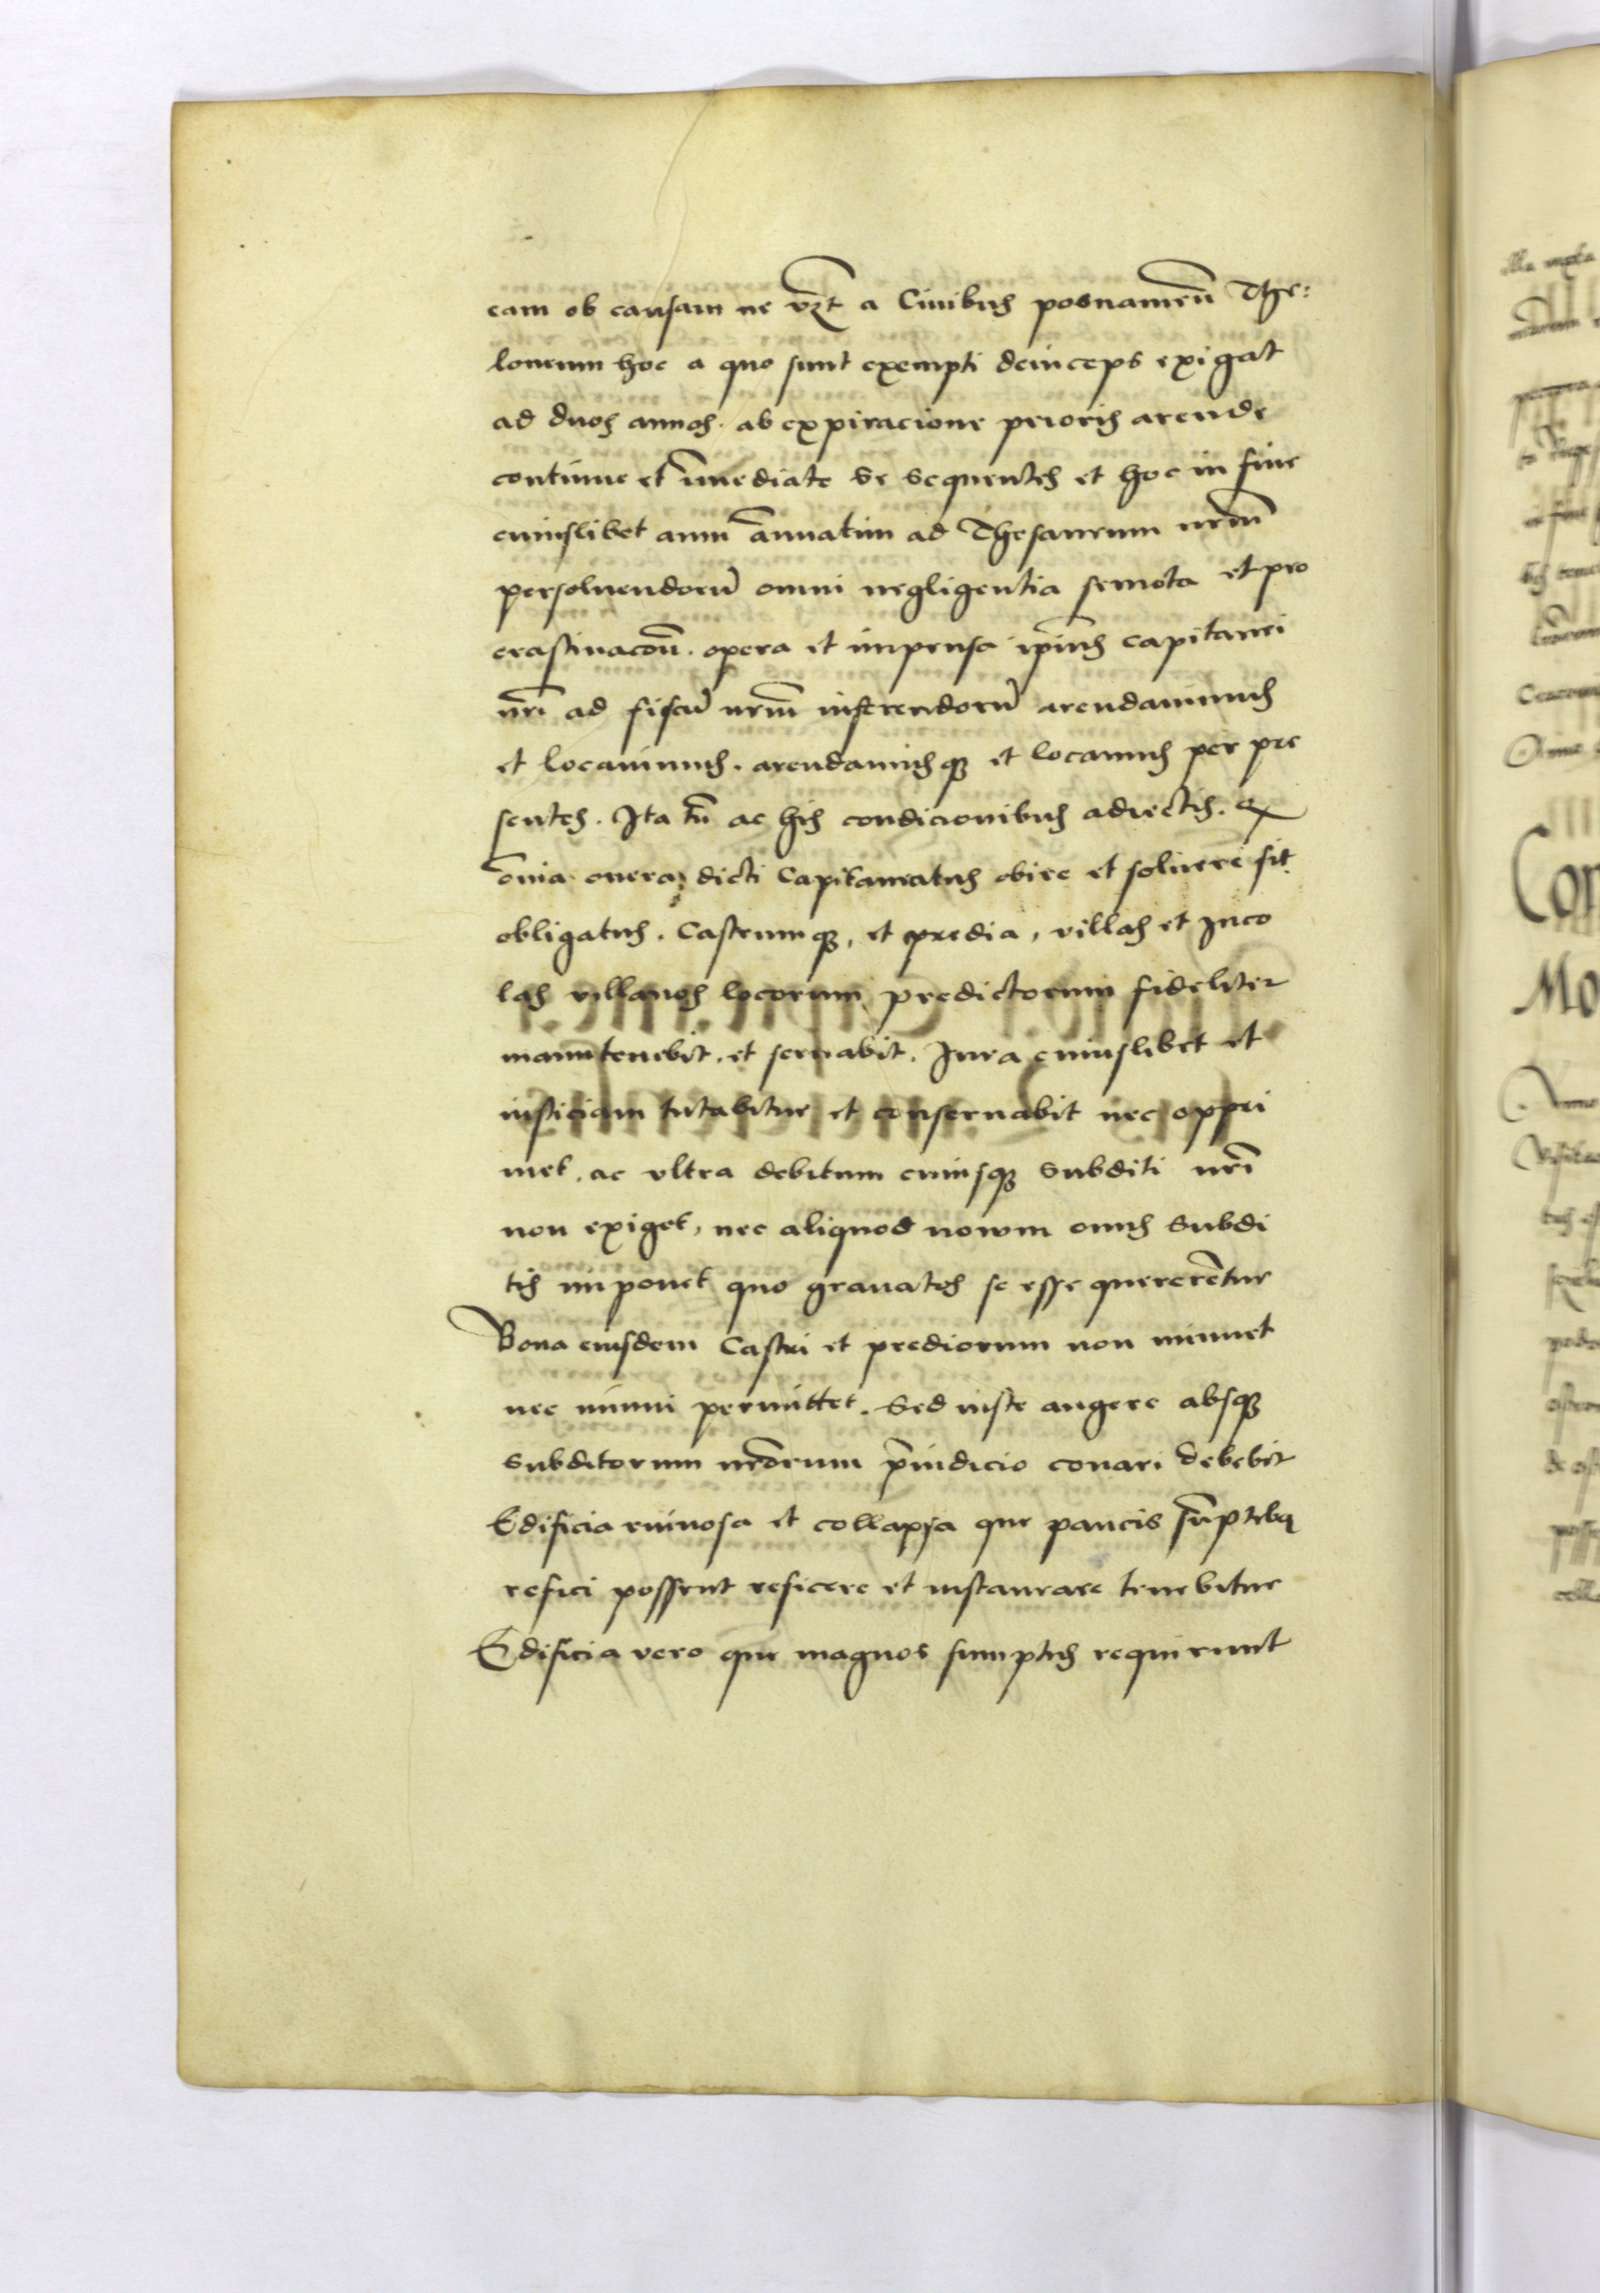 eam ob causam ne vzt a Ciuibus posnanien̄ The:
loneum hoc a quo sunt exempti deinceps exigat
ad duos annos. ab expiracione prioris arende
continue et īmediate se sequentes et hoc in fine
cuiuslibet anni annuatim ad Thesaurum nrm̄
persoluendorū omni negligentia semota et pro
crastinacōn̄. opera et impensa ip̄ius capitanei
nr̄i ad fiscū nrm̄ inferendorū arendauimus
et locauimus. arendamusq et locamus per pre
sentes. Ita tn̄ ac his condicionibus adiectis. Q
ōnia onera dicti Capitaneatus obire et soluere sit
obligatus. Castrumq, et predia, villas et Inco
las villanos locorum predictorum fideliter
manutenebit. et seruabit. Iura cuiuslibet et
iusticiam tutabitur et conseruabit nec oppri
met. ac vltra debitum cuiusq subditi nr̄i
non exiget, nec aliquod nowm onus Subdi
tis imponet quo grauatos se esse quererētur
Bona eiusdem Castri et prediorum non minuet
nec minui permittet. Sed iuste augere absq
Subditorum nrōrum p̄iudicio conari debebit
Edificia ruinosa et collapsa que paucis sūptibq
refici possent reficere et instaurare tenebitur
Edificia vero que magnos sumptus requirunt